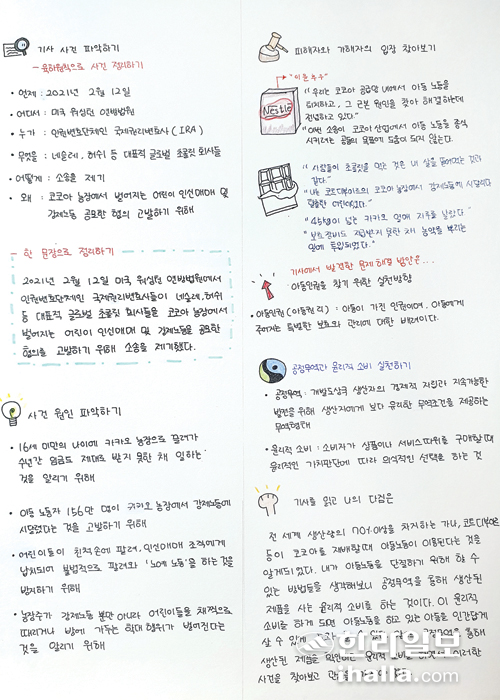 기사 사건 파악하기
- 육하원칙으로 사건 정리하기
• 언제 : 2021년 2월 12일
• 어디서 : 미국 워싱턴 연방법원
• 누가 : 인권변호단체인 국제권리변호사 (IRA)
• 무엇을 : 네슬레, 허쉬 등 대표적 글로벌 초콜릿 회사들
• 어떻게 : 소송을 제기
• 왜 : 코코아 농장에서 벌어지는 어린이 인신매매 및
강제노동 공모한 혐의 고발하기 위해
- 한 문장으로 정리하기
2021년 2월 12일 미국 워싱턴 연방법원에서
인권변호단체인 국제권리변호사들이 네슬레, 허쉬
등 대표적 글로벌 초콜릿 회사들을 코코아 농장에서
벌어지는 어린이 인신매매 및 강제노동을 공모한
혐의를 고발하기 위해 소송을 제기했다.
사건 원인 파악하기
• 16세 미만의 나이에 카카오 농장으로 팔려가
수년간 임금도 제대로 받지 못한 채 일하는
것을 알리기 위해
• 아동 노동자 156만 명이 카카오 농장에서 강제노동에
시달렸다는 것을 고발하기 위해
• 어린이들이 친척손에 팔려, 인신매매 조직에게
납치되어 불법적으로 팔려와 '노예 노동'을 하는 것을
방지하기 위해
• 농장주가 강제노동 뿐만 아니라 어린이들을 채찍으로
때리거나 방에 가두는 학대 행위가 벌어진다는
것을 알리기 위해
피해자와 가해자의 입장 찾아보기
Nestle
"우리는 코코아 공급망 내에서 아동 노동을
퇴치하고, 그 근본 원인을 찾아 해결하는데
전념하고 있다."
"이번 소송이 코코아 산업에서 아동 노동을 종식
시키려는 공동의 목표에 도움이 되지 않는다.
"사람들이 초콜릿을 먹는 것은 내 살을 뜯어먹는 것과
같다."
"나는 코트디부아르의 코코아 농장에서 강제노동에 시달리다
탈출한 어린이였다."
"45kg이 넘는 카카오 열매 자루를 날랐다"
"보호장비도 지급받지 못한 채 농약을 뿌리는
일에 투입되었다."
기사에서 발견한 문제 해결 방안은...
아동인권을 찾기 위한 실천방향
• 아동인권(아동권리) : 아동이 가진 인권이며, 아동에게
주어지는 특별한 보호와 관리에 대한 배려이다.
공정무역과 윤리적 소비 실천하기
• 공정무역 : 개발도상국 생산자의 경제적 자립과 지속가능한
발전을 위해 생산자에게 보다 유리한 무역조건을 제공하는
무역형태
• 윤리적 소비 : 소비자가 상품이나 서비스 따위를 구매할 때
윤리적인 가치판단에 따라 의식적인 선택을 하는 것
기사를 읽고 나의 다짐은
전 세계 생산량의 70%이상을 차지하는 가나, 코트디부아르
등이 코코아를 재배할때 아동노동이 이용된다는 것을
알게되었다. 내가 아동노동을 단절하기 위해 할 수
있는 방법들을 생각해보니 공정무역을 통해 생산된
제품을 사는 윤리적 소비를 하는 것이다. 이 윤리적
소비를 하게 되면 아동노동을 하고 있는 아동을 인간답게
살 수 있게 공정무역을 통해
생산된 제품을 윤리적 소비를 이러한
사건을 찾아보고
한라일보
ihalla.com